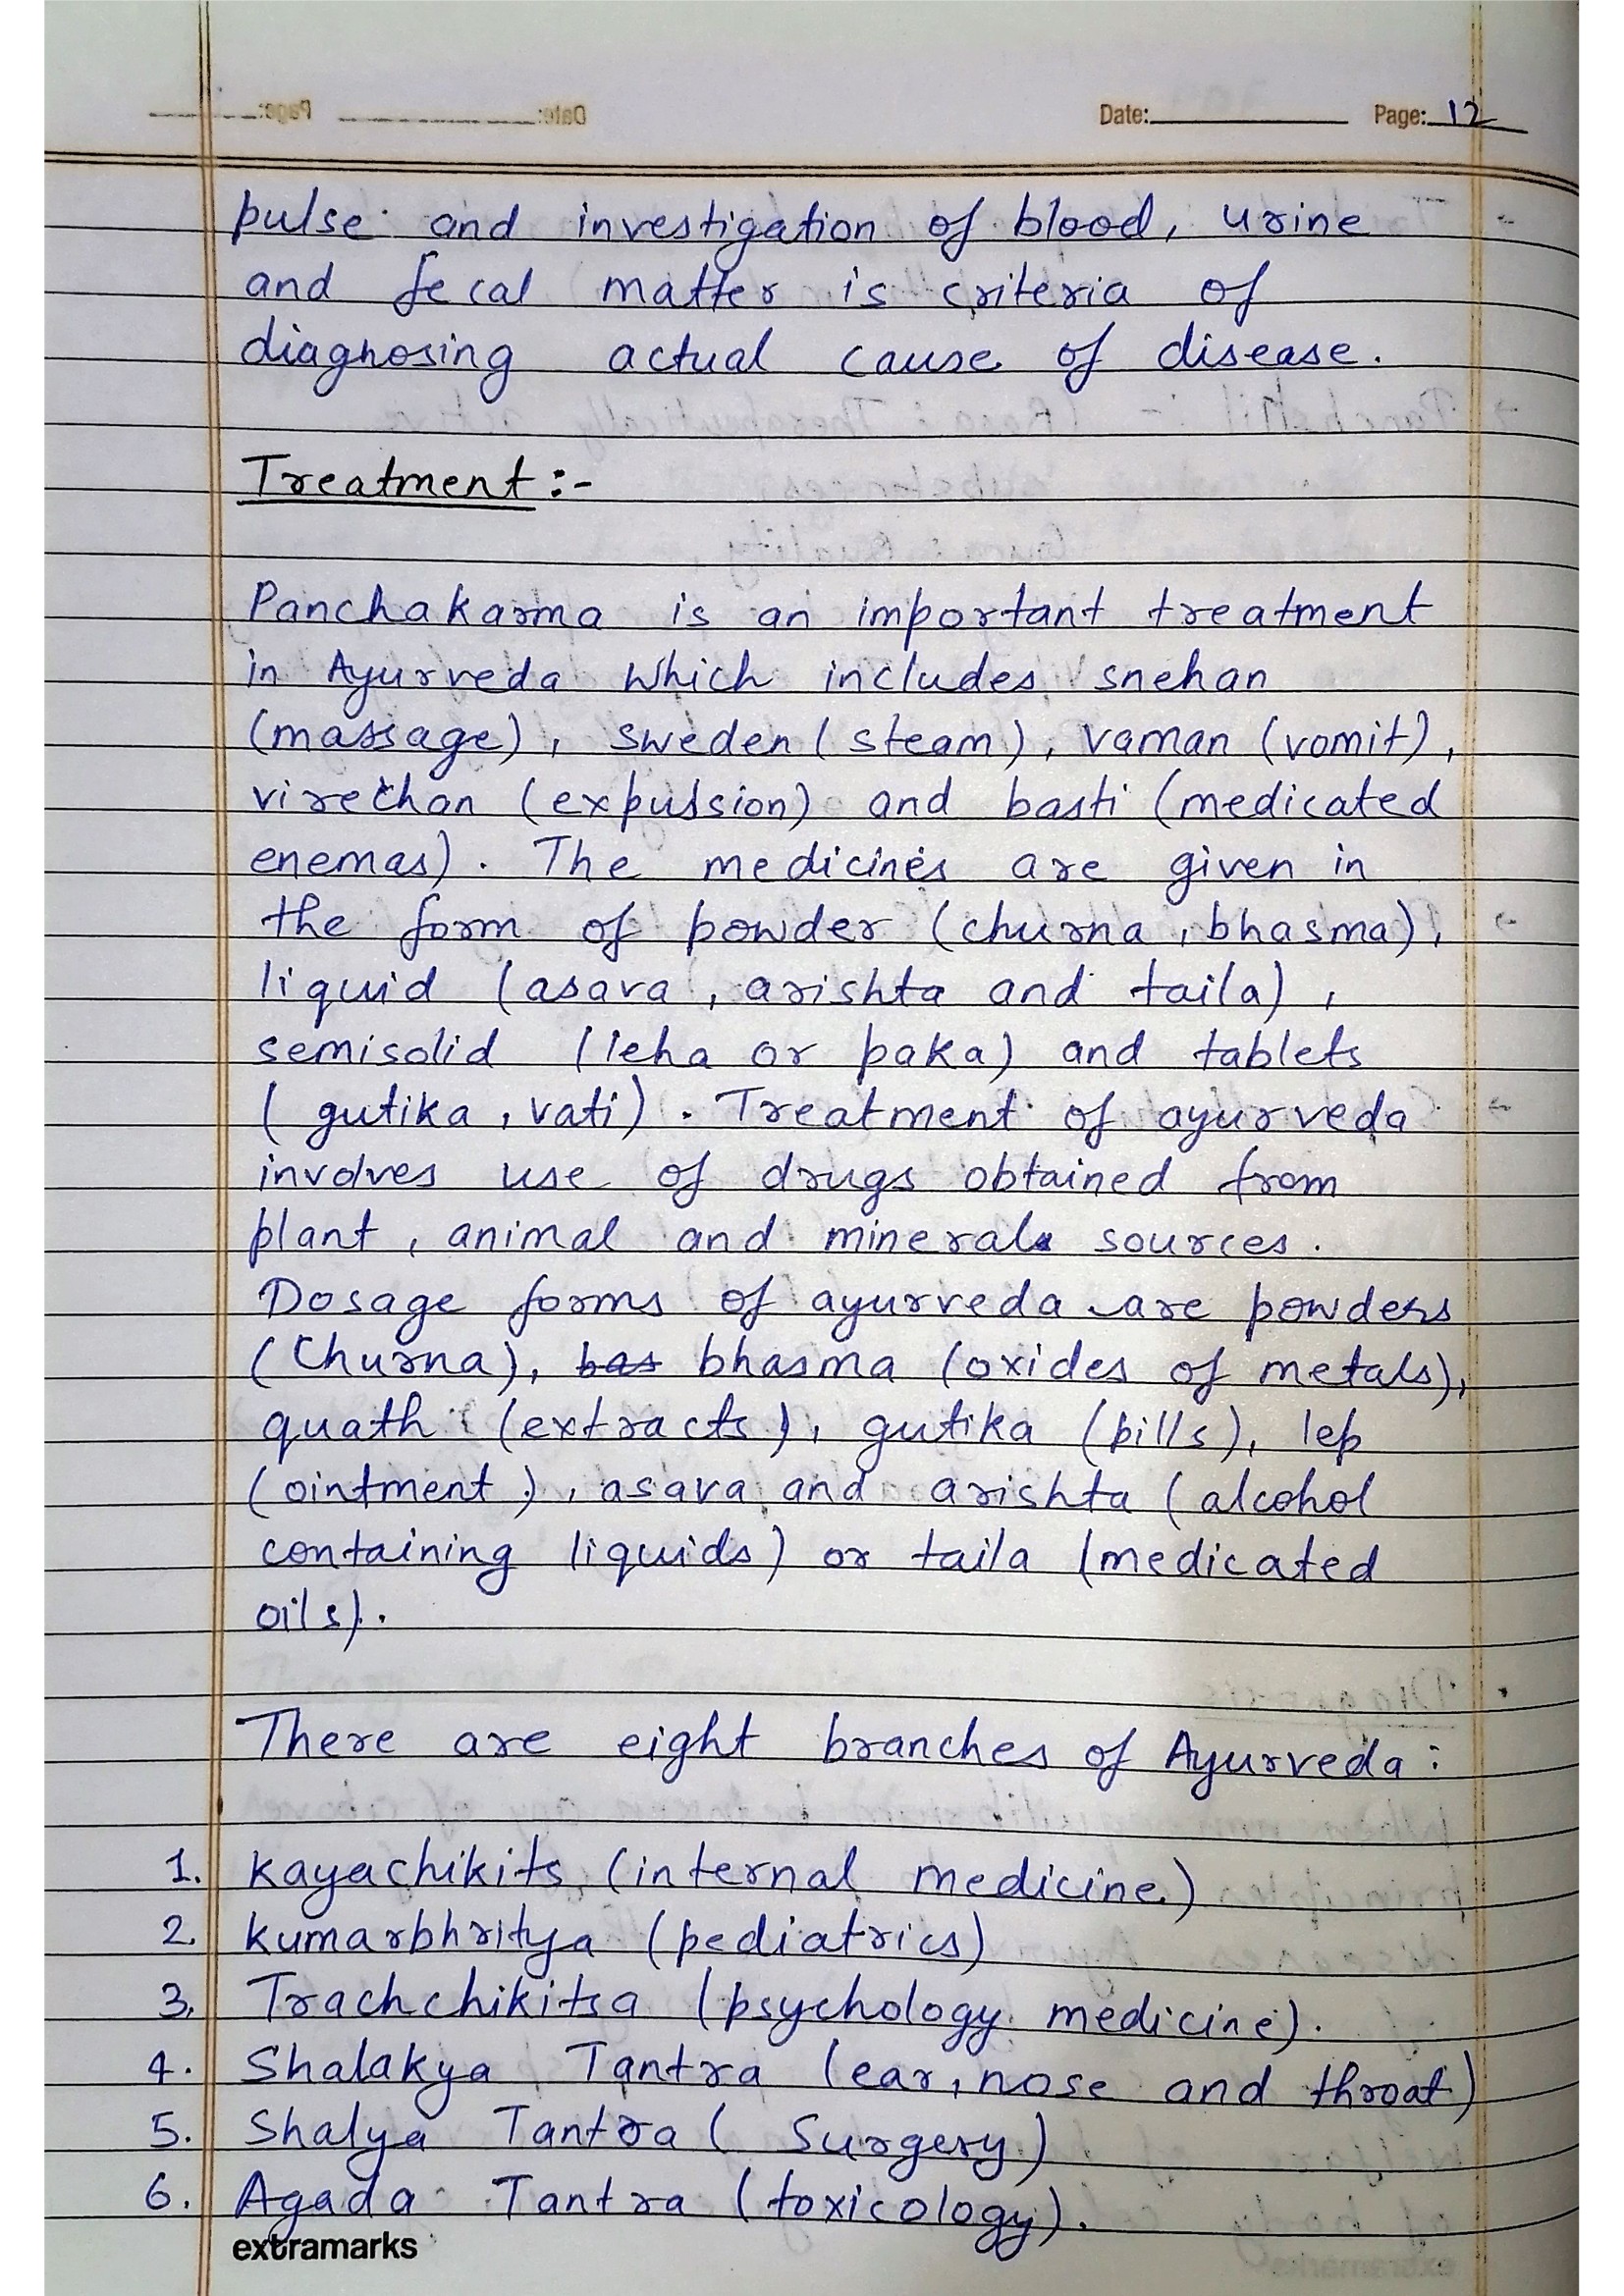 Date: Page: 12
pulse and investigation of blood, urine
and fecal matter is criteria of
diagnosing actual cause of disease.
Treatment :-
Panchakarma is an important treatment
in Ayurveda which includes snehan
(massage), sweden (steam), vaman (vomit),
virechan (expulsion) and basti (medicated
enemas). The medicines are given in
the form of powder (churna, bhasma),
liquid (asava, arishta and taila),
semisolid (leha or paka) and tablets
(gutika, vati). Treatment of ayurveda
involves use of drugs obtained from
plant, animal and mineral sources.
Dosage forms of ayurveda are powders
(Churna), bas bhasma (oxides of metals),
quath (extracts), gutika (pills), lep
(ointment), asava and arishta (alcohol
containing liquids) or taila (medicated
oils).
There are eight branches of Ayurveda :
1. Kayachikits (internal medicine)
2. Kumarbhritya (pediatrics)
3. Trachchikitsa (psychology medicine).
4. Shalakya Tantra (ear, nose and throat)
5. Shalya Tantra ( Surgery)
6. Agada Tantra (toxicology).
extramarks